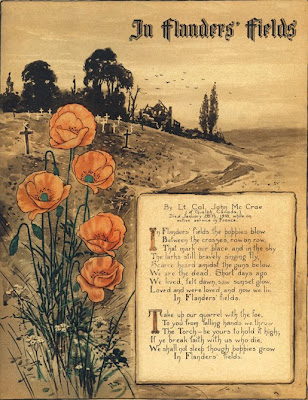 In Flanders' Fields
By Lt. Col. John Mc Crae
(of Guelph, Canada.)
Died January 28th, 1918, while on
active service in France.
In Flanders' fields the poppies blow
Between the crosses, row on row,
That mark our place, and in the sky
The larks still bravely singing fly,
Scarce heard amidst the guns below.
We are the dead. Short days ago
We lived, felt dawn, saw sunset glow,
Loved and were loved, and now we lie
In Flanders' fields.
Take up our quarrel with the foe,
To you from falling hands we throw
The Torch—be yours to hold it high;
If ye break faith with us who die,
We shall not sleep though poppies grow
In Flanders' fields.